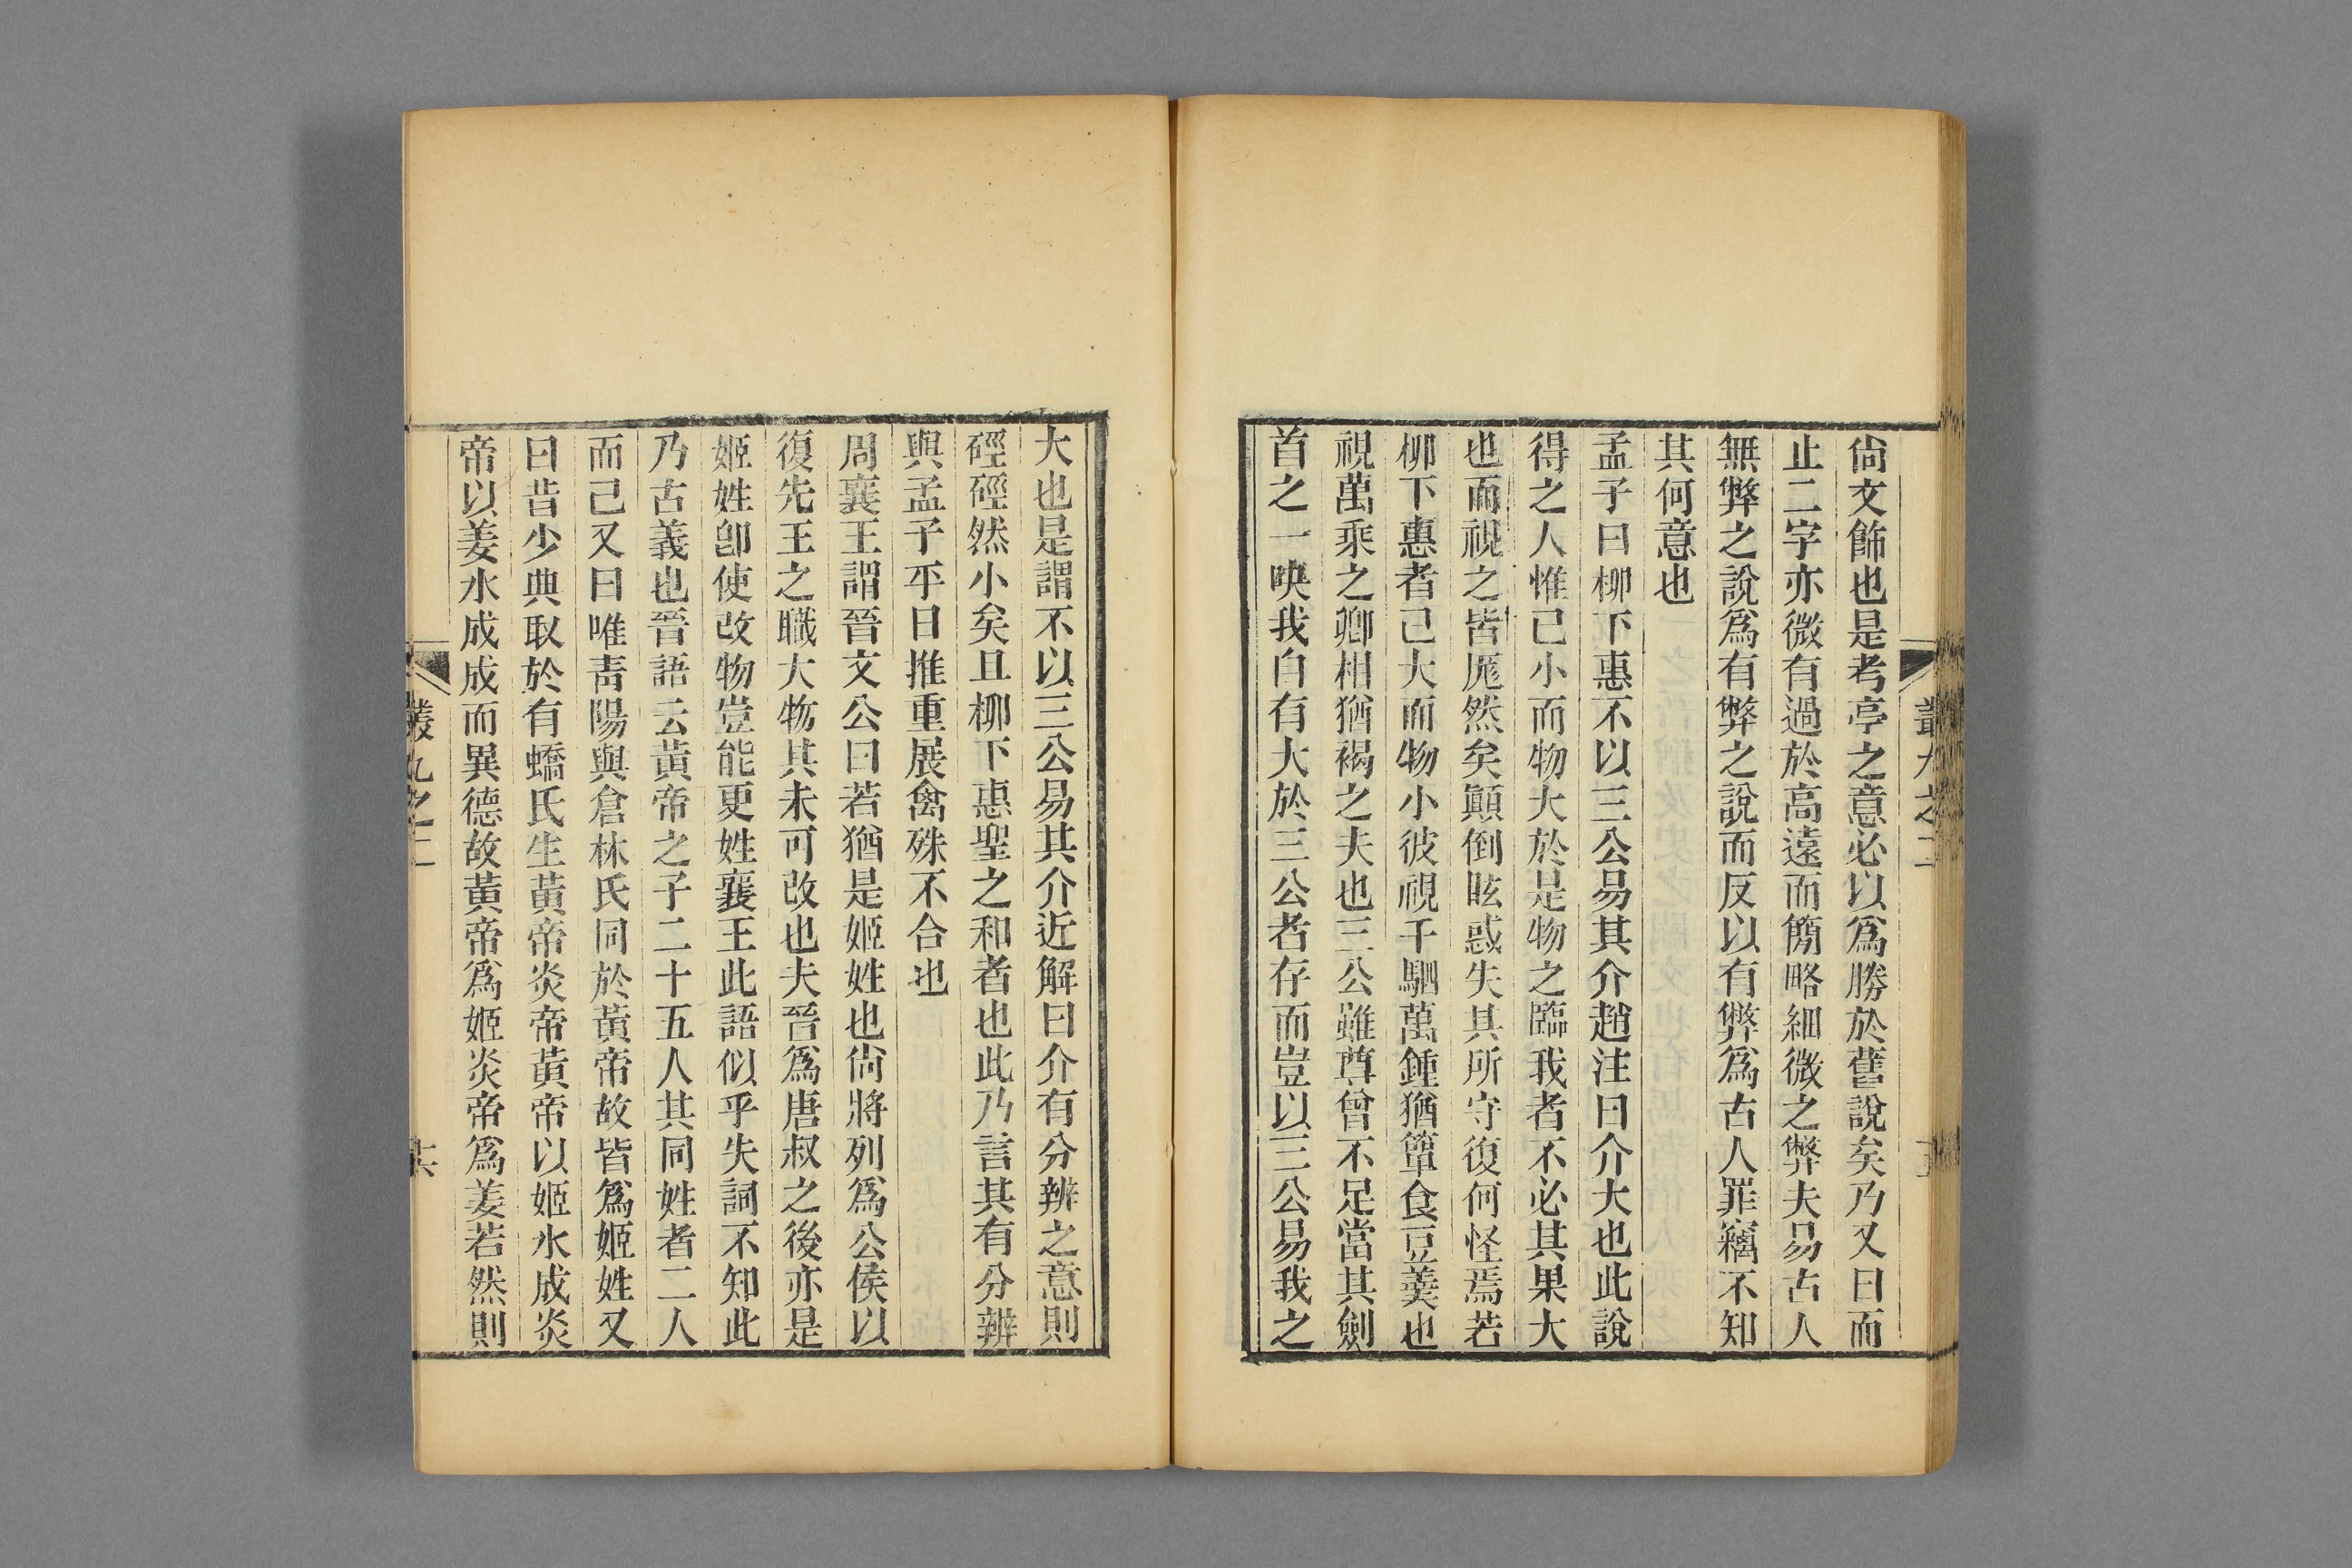 尙文飾也是考亭之意必以爲勝於舊說矣乃又曰而
止二字亦微有過於高遠而簡略細微之弊夫易古人
無弊之說爲有弊之說而反以有弊爲古人罪竊不知
其何意也
孟子曰柳下惠不以三公易其介趙注曰介大也此說
得之人惟己小而物大於是物之臨我者不必其果大
也而視之皆厖然矣顚倒眩惑失其所守復何怪焉若
柳下惠者己大而物小彼視千駟萬鍾猶簞食豆羹也
視萬乘之卿相猶褐之夫也三公雖尊曾不足當其劍
首之一吷我自有大於三公者存而豈以三公易我之
叢九之二
大也是謂不以三公易其介近解曰介有分辨之意則
硜硜然小矣且柳下惠聖之和者也此乃言其有分辨
與孟子平日推重展禽殊不合也
周襄王謂晉文公曰若猶是姬姓也尙將列爲公侯以
復先王之職大物其未可改也夫晉爲唐叔之後亦是
姬姓卽使改物豈能更姓襄王此語似乎失詞不知此
乃古義也晉語云黃帝之子二十五人其同姓者二人
而已又曰唯靑陽與倉林氏同於黃帝故皆爲姬姓又
曰昔少典取於有蟜氏生黃帝炎帝黃帝以姬水成炎
帝以姜水成成而異德故黃帝爲姬炎帝爲姜若然則
叢九之二
十六